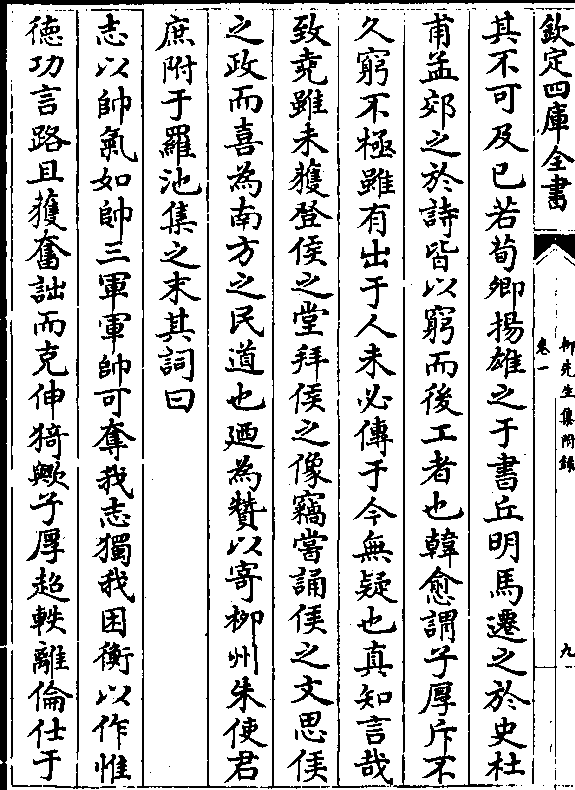 欽定四庫全書
柳先生集附錄
卷一
九
其不可及已若荀卿揚雄之于書丘明馬遷之於史杜
甫孟郊之於詩皆以窮而後工者也韓愈謂子厚斥不
久窮不極雖有出于人未必傳于今無疑也真知言哉
致堯雖未獲登侯之堂拜侯之像竊嘗誦侯之文思侯
之政而喜為南方之民道也廼為贊以寄柳州朱使君
庶附于羅池集之末其詞曰
志以帥氣如帥三軍軍帥可奪我志獨我困衡以作惟
德功言路且獲奮詘而克伸猗歟子厚超軼離倫仕于